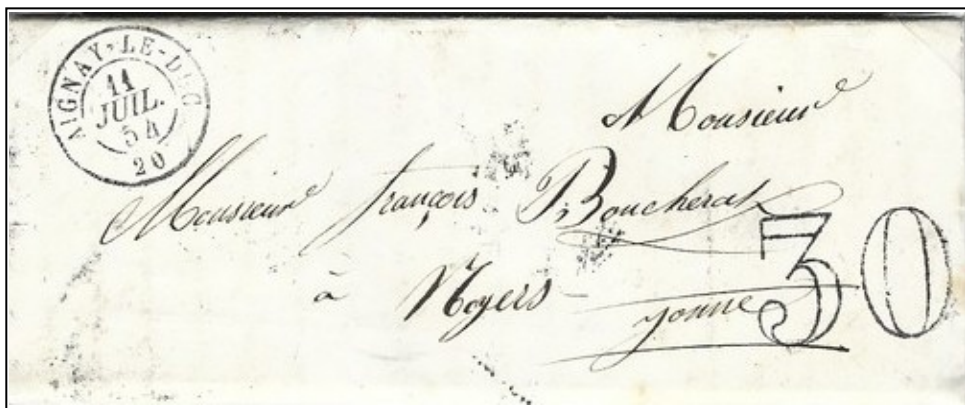 AIGNAY-LE-DUC
11
JUIL.
54
20
Monsieur
Monsieur françois Boucherat
à Noyers
yonne
30